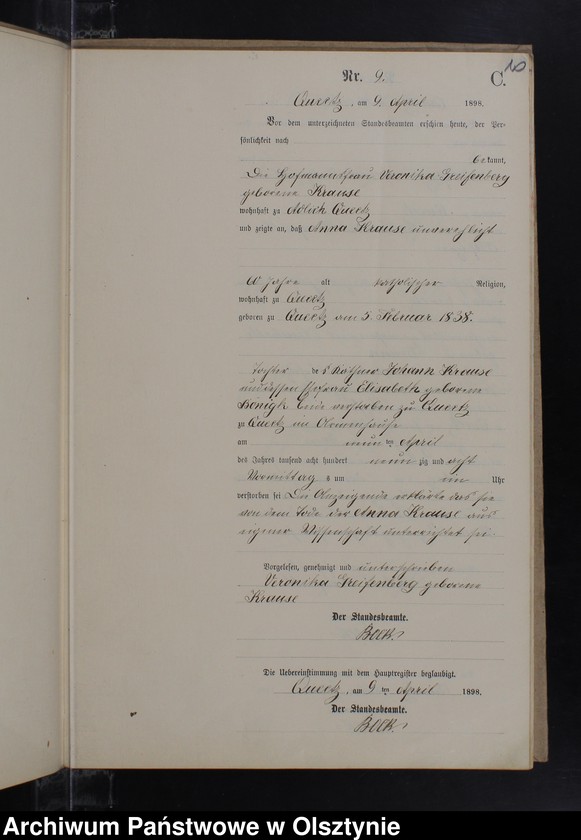 10
Nr. 9. C.
Queetz, am 9. April 1898.
Vor dem unterzeichneten Standesbeamten erschien heute, der Per-
sönlichkeit nach
bekannt,
Die Hofmannsfrau Veronika Greifenberg
geborene Krause
wohnhaft zu Adlich Queetz
und zeigte an, daß Anna Krause unverehlicht
60 Jahre alt katholischer Religion,
wohnhaft zu Queetz
geboren zu Queetz am 5. Februar 1838.
Tochter des Käthner Johann Krause
und dessen Ehefrau Elisabeth geborene
Königk beide verstorben zu Queetz
zu Queetz im Armenhause
am neun ten April
des Jahres tausend acht hundert neun zig und acht
Vormittag s um ein Uhr
verstorben sei Die Anzeigende erklärte das sie
von dem Tode der Anna Krause aus
eigener Wissenschaft unterrichtet sei.
Vorgelesen, genehmigt und unterschrieben
Veronika Greifenberg geborene
Krause
Der Standesbeamte.
Die Uebereinstimmung mit dem Hauptregister beglaubigt.
Queetz, am 9 ten April 1898.
Der Standesbeamte.
Archiwum Państwowe w Olsztynie